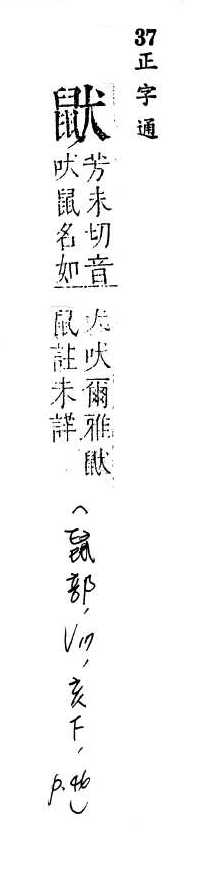 37 正字通
鼣
芳未切音
吠鼠名如
犬吠爾雅鼣
鼠註未詳
(鼠部, 亥下, p.46)